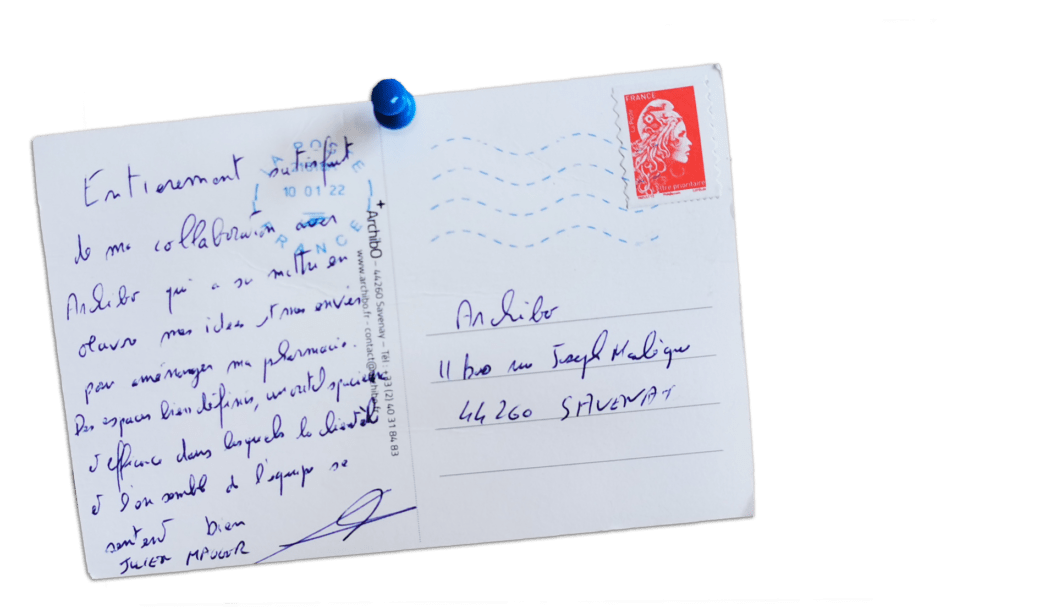 Entierement satisfait
de ma collaboration avec
Archibo qui a su mettre en
œuvre mes idées et mes envies
pour aménager ma pharmacie.
Des espaces bien définis, un outil spacieux
et efficace dans lesquels la clientèle
et l'ensemble de l'équipe se
sentent bien
JULIEN MAUGER
10 01 22
FRANCE
+ ArchibO – 44260 Savenay – Tél : +33 (2) 40 31 84 83
www.archibo.fr - contact@archibo.fr
FRANCE
lettre prioritaire
Archibo
11 bis rue Joseph Malègue
44260 SAVENAY